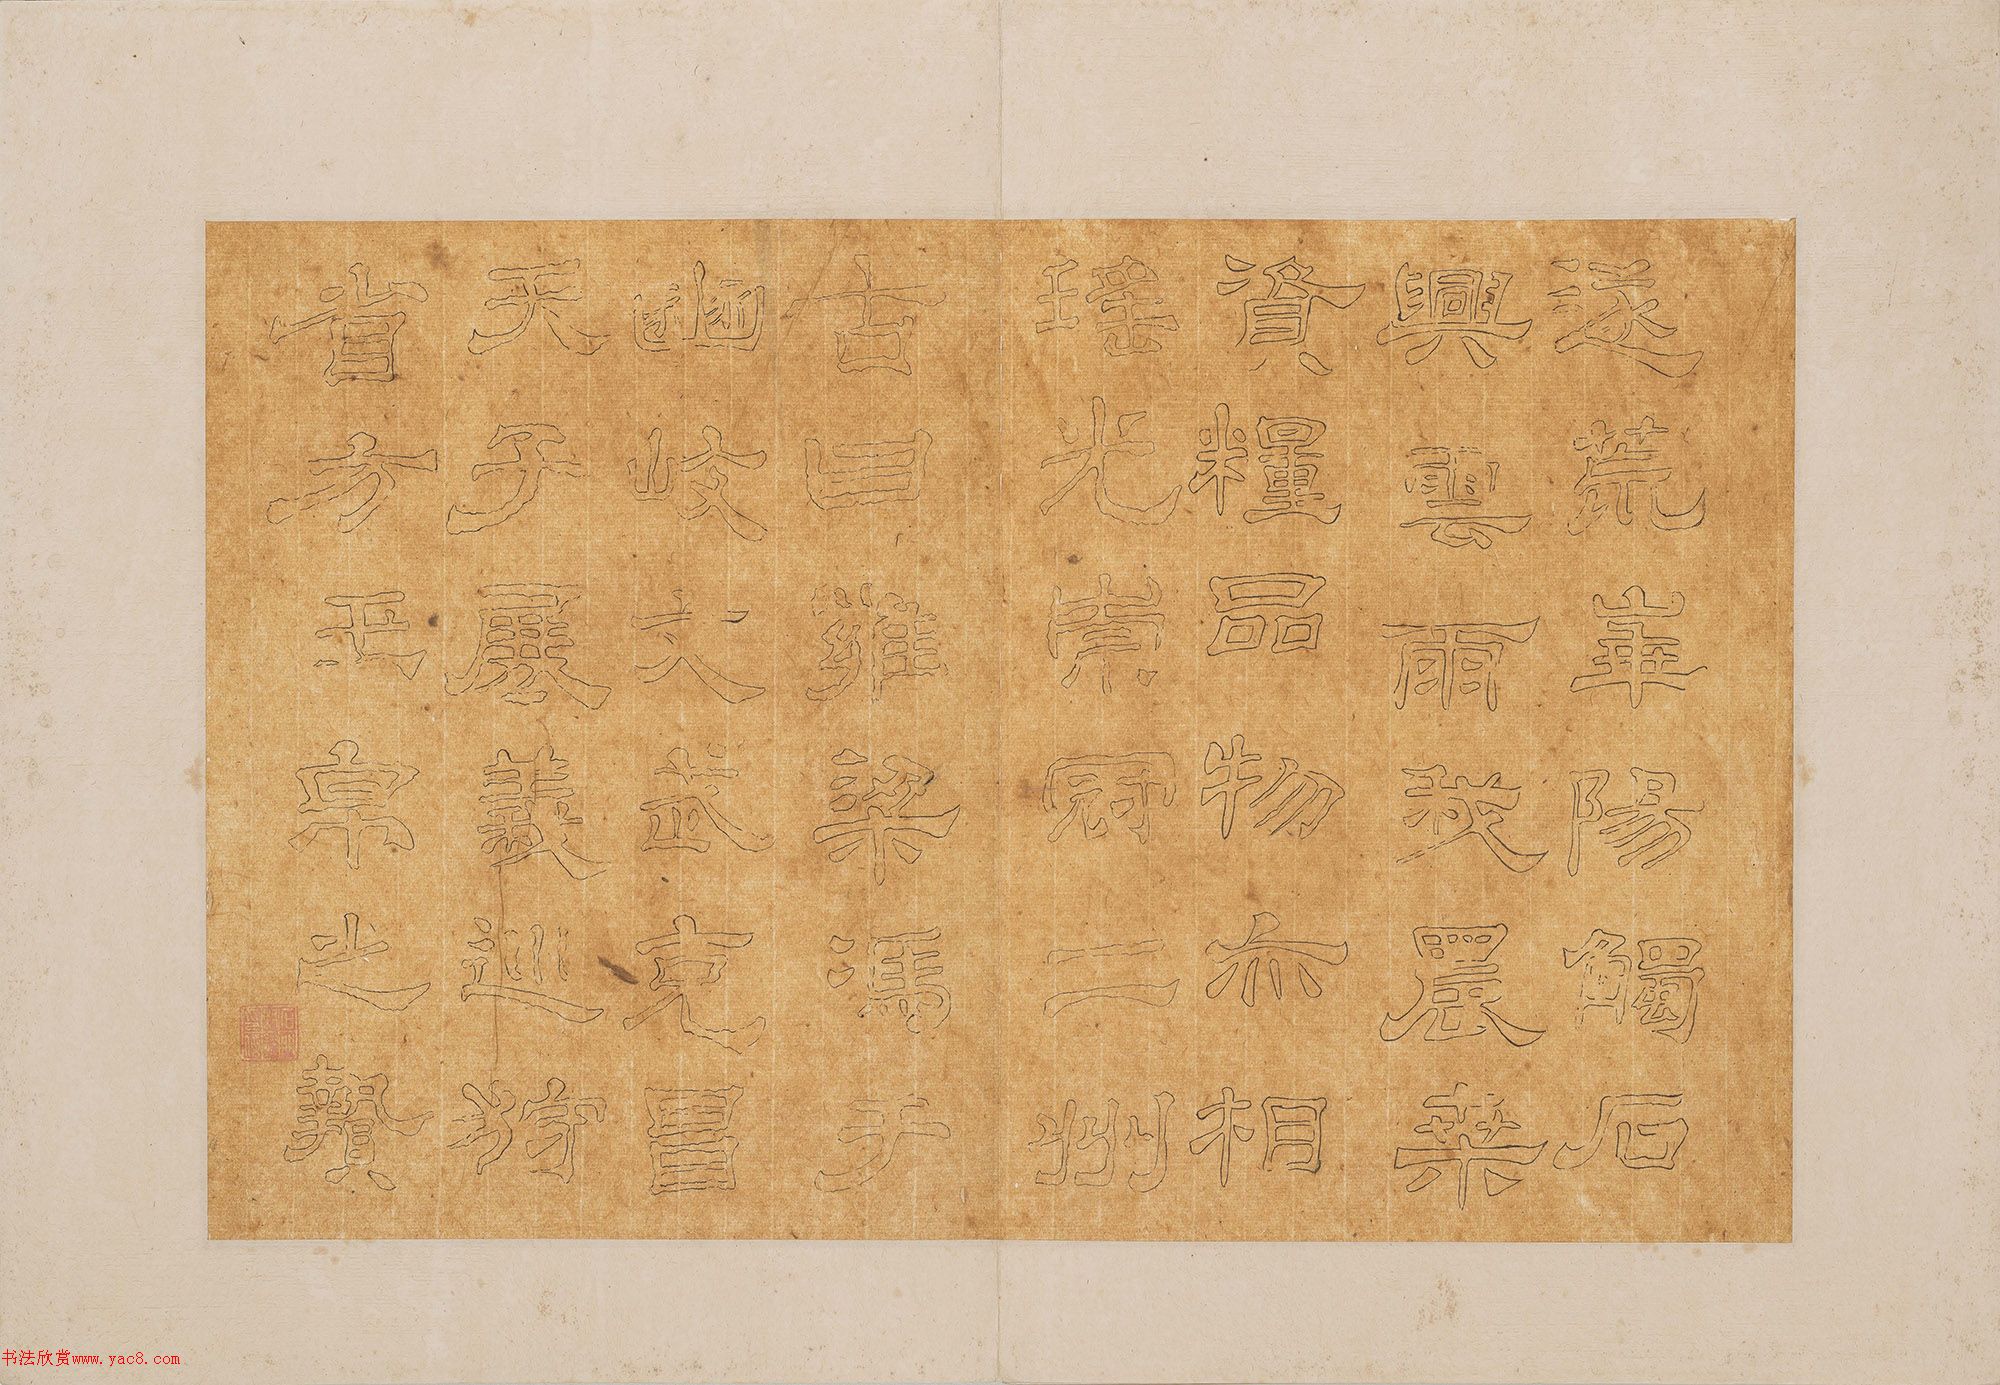 遂荒華陽觸石
興雲雨我農桑
資糧品物亦相
瑤光崇冠二州
古曰雍梁馮于
豳岐文武克昌
天子展義巡狩
省方玉帛之贄
书法欣赏www.yac8.com